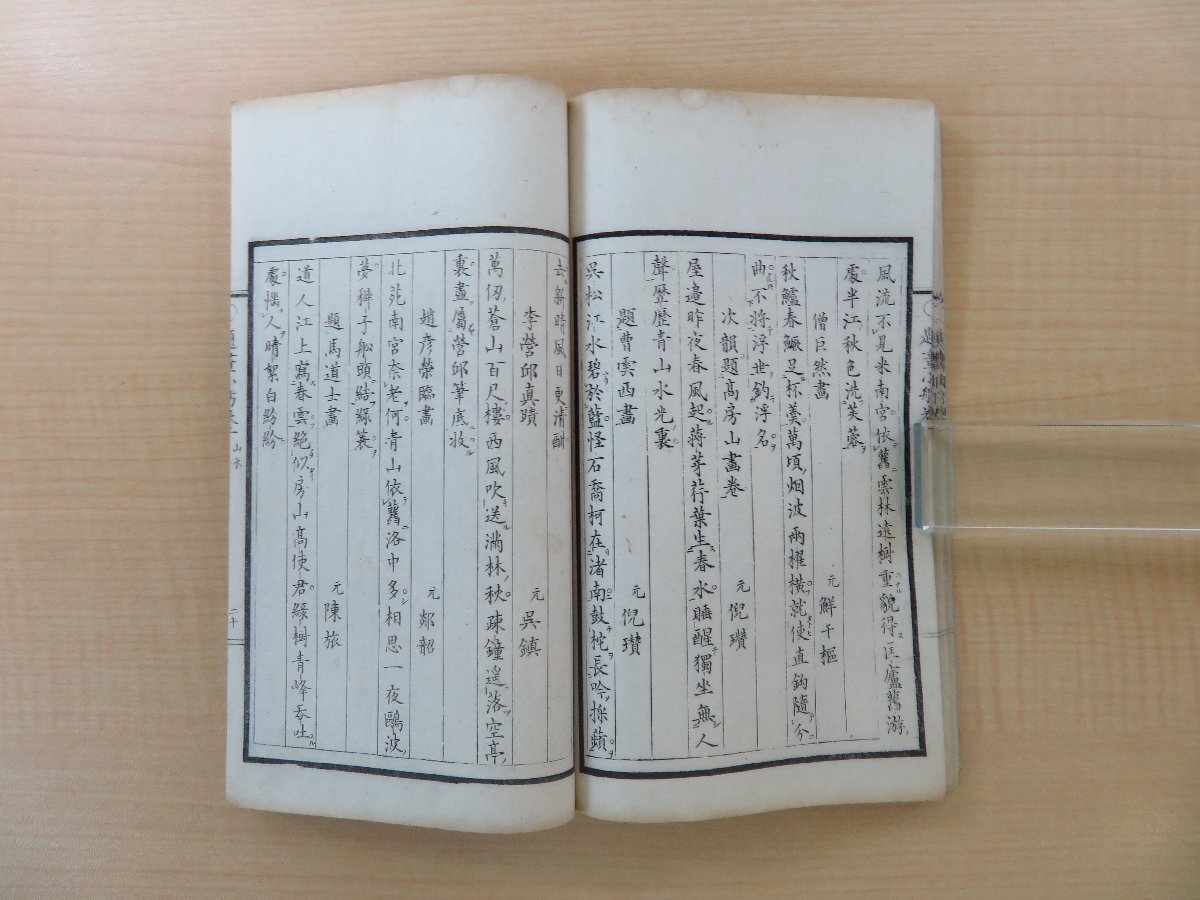 風流不見米南宮依舊雲林遠樹重貌得匡廬舊游
處半江秋色洗芙蓉
僧巨然畫 元 鮮于樞
秋鱸春鱖足杯羹萬頃烟波兩櫂橫就使直鉤隨分
曲不將浮世釣浮名
次韻題高房山畫卷 元 倪瓚
屋邉昨夜春風起蔣芽荇葉生春水睡醒獨坐無人
聲歷歷青山水光裏
題曹雲西畫 元 倪瓚
吳松江水碧於藍怪石喬柯在渚南鼓柁長吟採蘋
去新晴風日更清酣
李營邱真蹟 元 吳鎮
萬仞蒼山百尺樓西風吹送滿林秋疎鐘遙落空亭
裏盡屬營邱筆底收
趙彥榮臨畫 元 郯韶
北苑南宮奈老何青山依舊洛中多相思一夜鷗波
夢穉子船頭結綠蓑
題馬道士畫 元 陳旅
道人江上寫春雲絕似房山高使君綠樹青峰吞吐
處惱人晴絮白紛紛
山水
二十